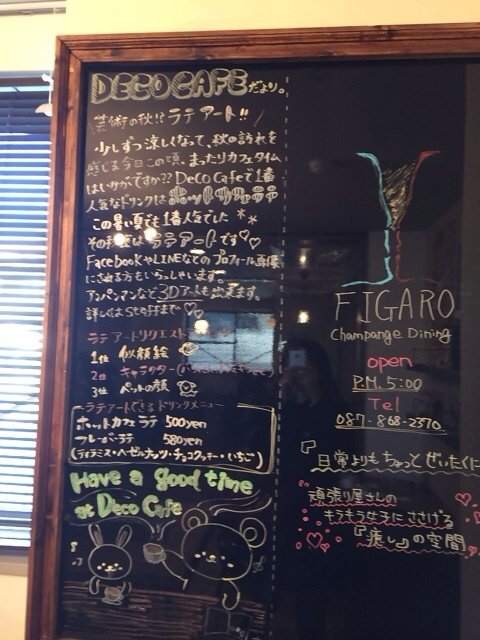 DECO CAFEだより。
芸術の秋!! ラテアート!!
少しずつ涼しくなって、秋の訪れを
感じる今日この頃、まったりカフェタイム
はいかがですか?? Deco Cafeで1番
人気なドリンクはホットカフェラテ
この暑い夏でも1番人気でした
その秘密はラテアートです♡♡
FacebookやLINEなどのプロフィール画像
にされる方もいらっしゃいます。
アンパンマンなど3Dアートも出来ます。
詳しくはstaffまで♡
ラテアートリクエスト
1位 似顔絵
2位 キャラクター
3位 ペットの顔
ラテアートできるドリンクメニュー
ホットカフェラテ 500yen
フレーバーラテ 580yen
(ティラミス・ヘーゼルナッツ・チョコクッキー・いちご)
Have a good time
at Deco Cafe
FIGARO
Champange Dining
open
P.M. 5:00
Tel
087-868-2370
『日常よりもちょっとぜいたくに
頑張り屋さんの
キラキラ女子にささげる
『癒し』の空間